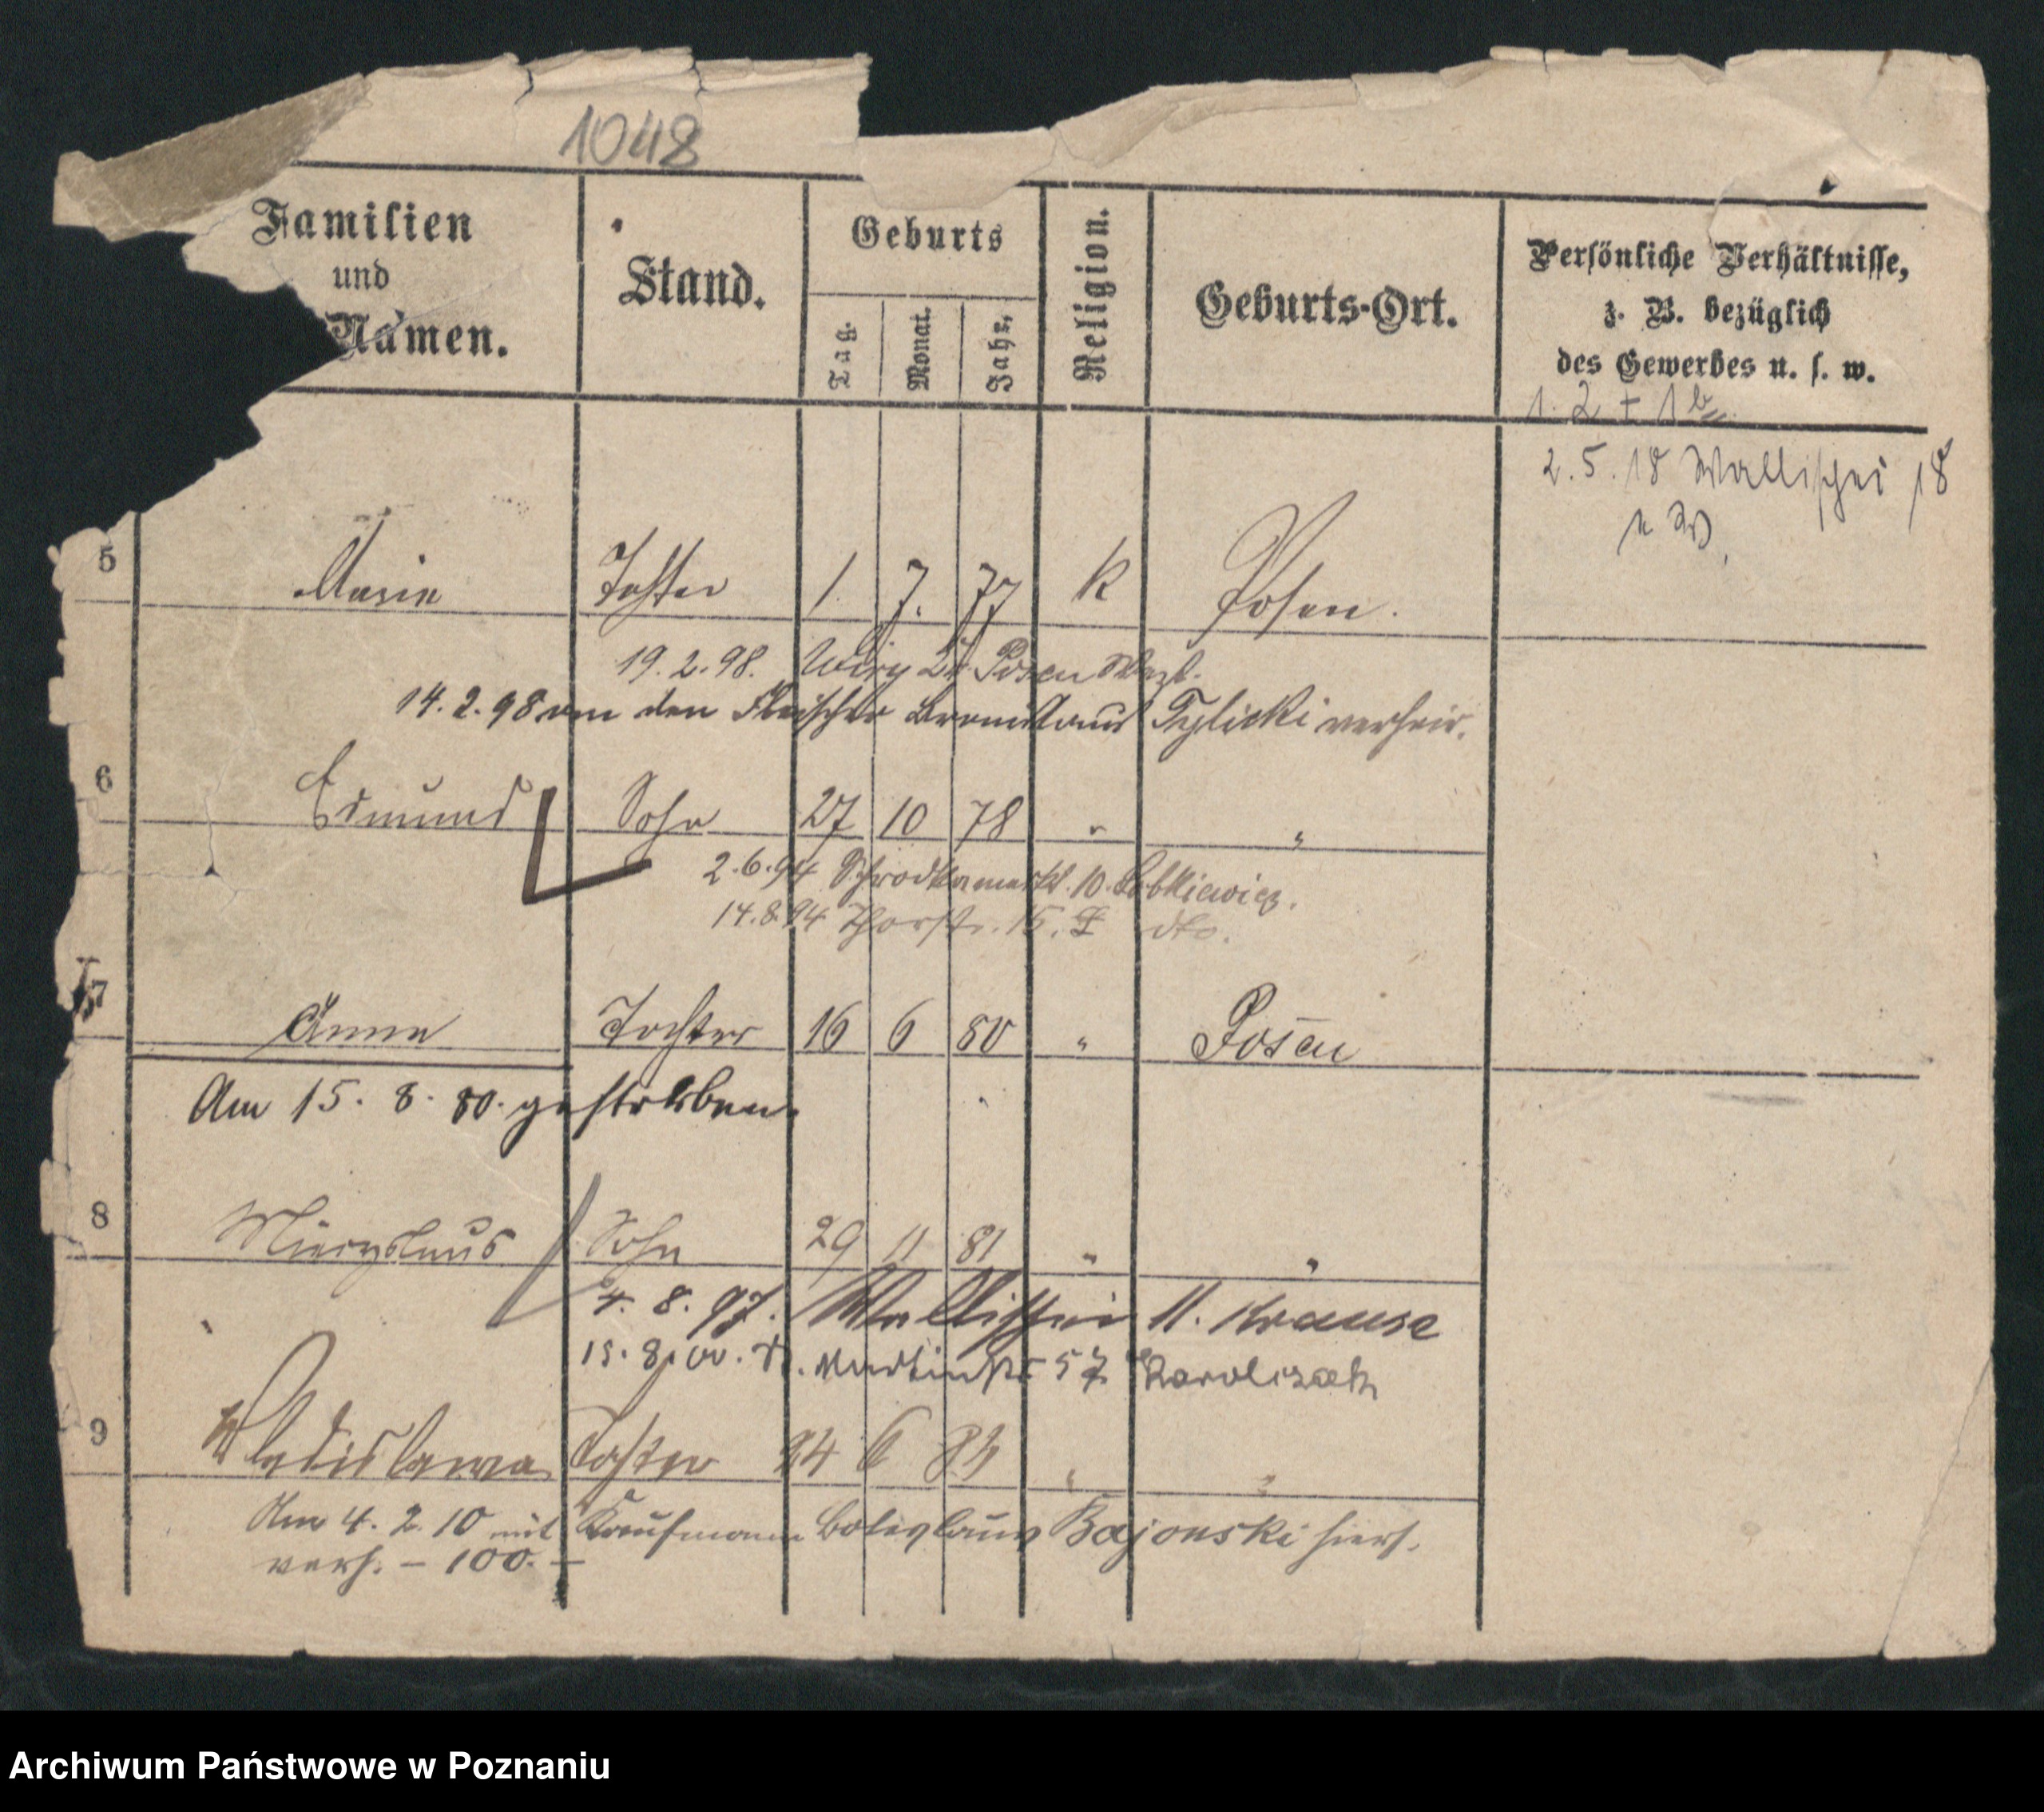 1048
Familien
und
Namen.
Stand.
Geburts
Tag.
Monat.
Jahr.
Religion.
Geburts-Ort.
Persönliche Verhältnisse,
z. B. bezüglich
des Gewerbes u. s. w.
1. 2 + 1
2. 5. 18 Wallischei 18
5 Marie Tochter 1. 7. 77 K Posen.
19. 2. 98. Posen
14. 2. 98 an den Fleischer Bronislaus Tylicki verheir.
6 Edmund Sohn 27 10 78 " "
2. 6. 94 Schrodkamarkt. 10.
14. 8. 94 Thorstr. 15. I dto.
7 Anna Tochter 16 6 80 " Posen
Am 15. 8. 80. gestorben.
8 Miecyslaus Sohn 29 11 81 " "
4. 8. 97. Wallischei 11. Krause
15. 8. 00. St. Martinstr 57 Karolczak
9 Wladislawa Tochter 24 6 84 " "
Am 4. 2. 10 mit Kaufmann Boleslaus Bajonski hiers.
verh. – 100. –
Archiwum Państwowe w Poznaniu